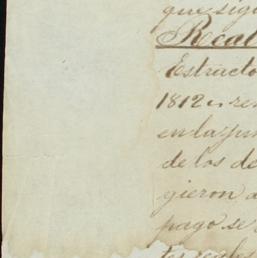 que sig
Real
Extracto
1812
en la jun
de los de
gieron a
pago se